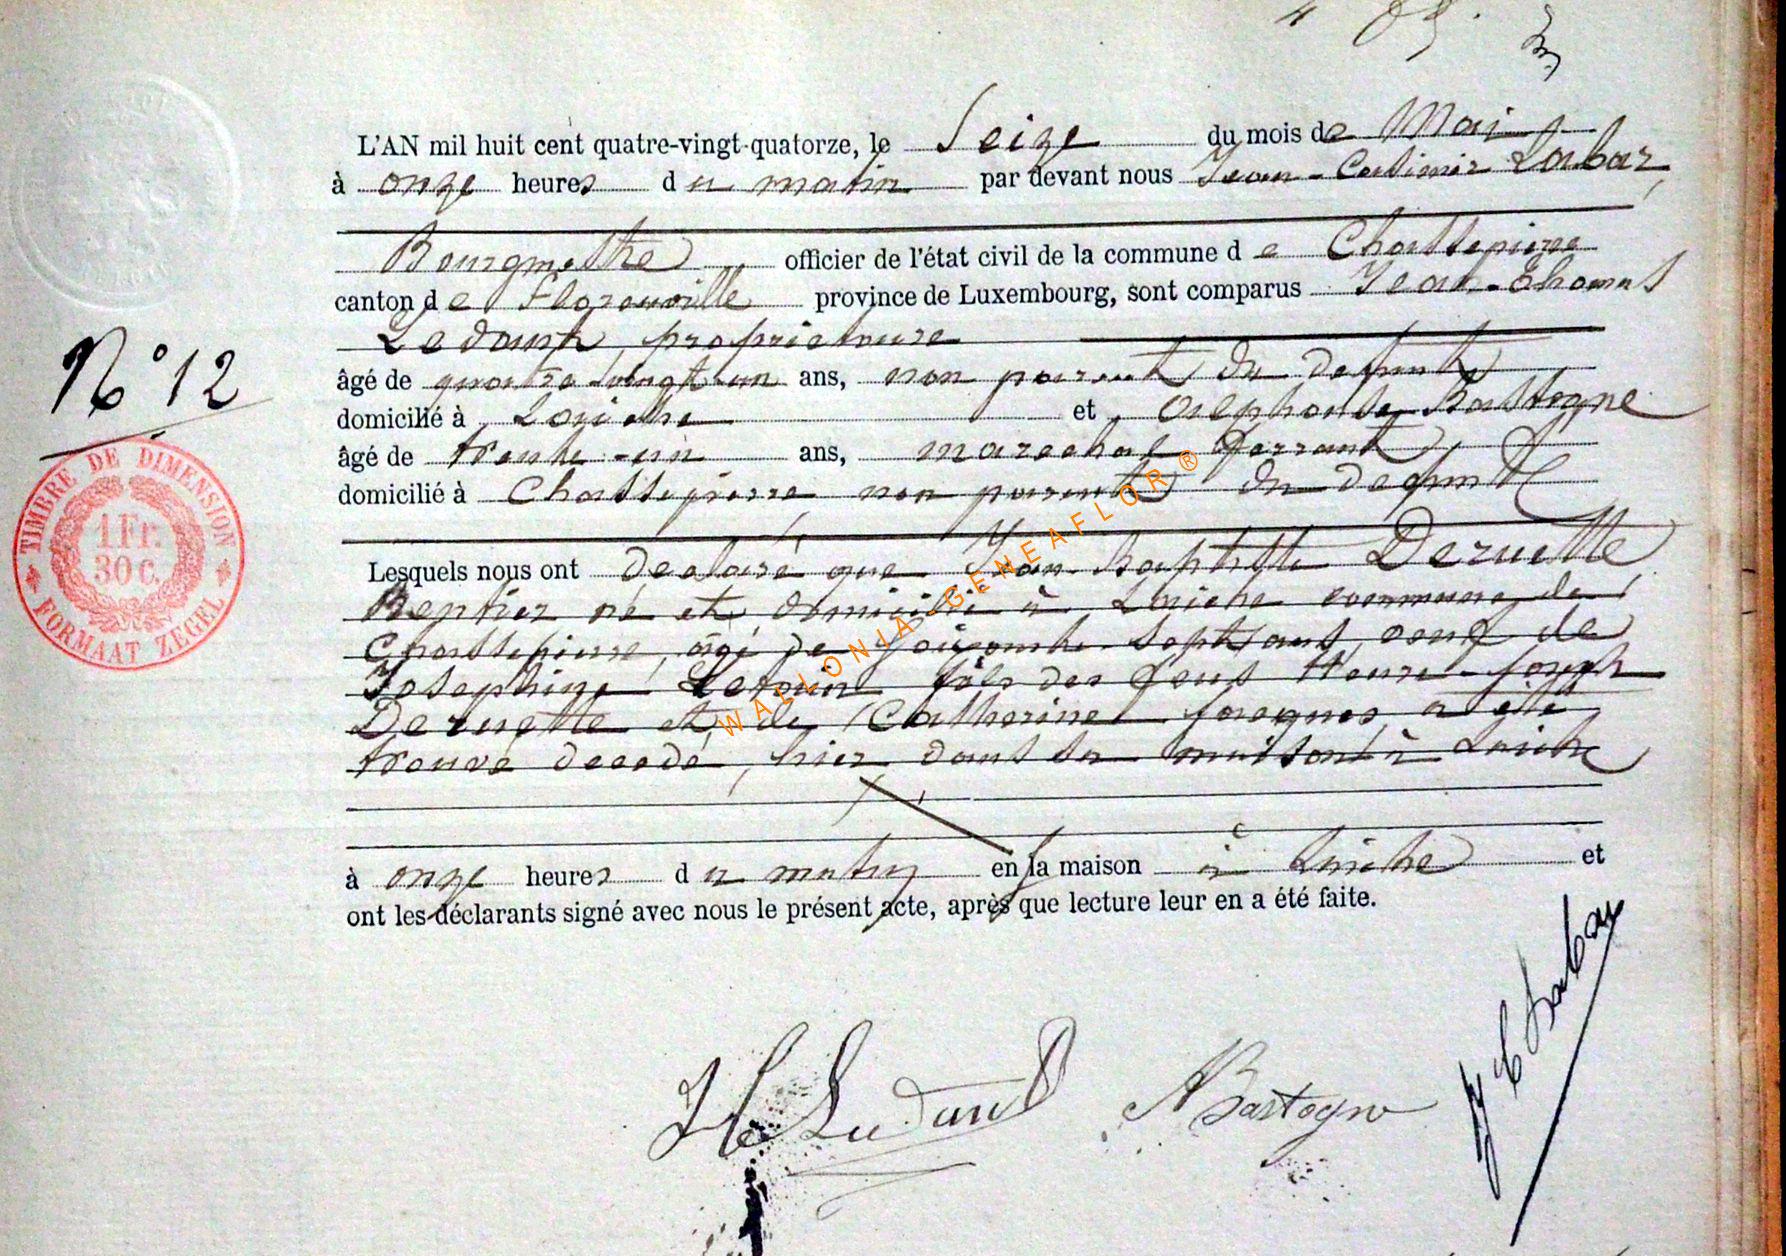 L'AN mil huit cent quatre-vingt-quatorze, le Seize du mois de Mai
à onze heures du matin par devant nous Jean-Casimir Labar,
Bourgmestre officier de l'état civil de la commune de Chassepierre
canton de Florenville province de Luxembourg, sont comparus Jean-Thomas
Ledant, propriétaire
N° 12
âgé de quatre vingt-un ans, non parent du défunt
domicilié à Laiche et Alphonse Bastogne
âgé de trente-un ans, maréchal ferrant
domicilié à Chassepierre non parent du défunt
TIMBRE DE DIMENSION
1 Fr.
30 c.
FORMAAT ZEGEL
Lesquels nous ont déclaré que Jean-Baptiste Deruette
Rentier né et domicilié à Laiche commune de
Chassepierre, âgé de soixante-sept ans, veuf de
Joséphine fils des feus Henri-Joseph
Deruette et de Catherine Jacques, a été
trouvé décédé, hier dans sa maison à Laiche
à onze heures du matin en la maison à Laiche et
ont les déclarants signé avec nous le présent acte, après que lecture leur en a été faite.
Ledant A Bastogne J C Labar
WALLONIA-GENEAFLOR ®